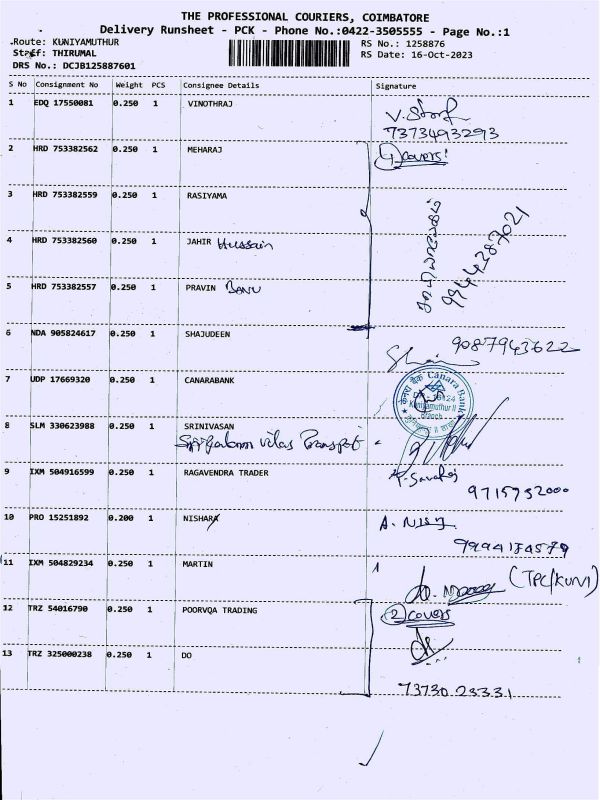 THE PROFESSIONAL COURIERS, COIMBATORE
Delivery Runsheet - PCK - Phone No.:0422-3505555 - Page No.:1
Route: KUNIYAMUTHUR RS No.: 1258876
Staff: THIRUMAL RS Date: 16-Oct-2023
DRS No.: DCJB125887601
S No Consignment No Weight PCS Consignee Details Signature
1 EDQ 17550081 0.250 1 VINOTHRAJ
7373493293
2 HRD 753382562 0.250 1 MEHARAJ 4 covers
3 HRD 753382559 0.250 1 RASIYAMA
9944387021
4 HRD 753382560 0.250 1 JAHIR Hussain
5 HRD 753382557 0.250 1 PRAVIN BANU
6 NDA 905824617 0.250 1 SHAJUDEEN 9087943622
7 UDP 17669320 0.250 1 CANARABANK
Canara Bank
Kuniyamuthur II
Branch
8 SLM 330623988 0.250 1 SRINIVASAN
Vilas Transport
9 IXM 504916599 0.250 1 RAGAVENDRA TRADER
9715932000
10 PRO 15251892 0.200 1 NISHARA
9994134579
11 IXM 504829234 0.250 1 MARTIN
12 TRZ 54016790 0.250 1 POORVQA TRADING 2 covers
13 TRZ 325000238 0.250 1 DO
7373023331